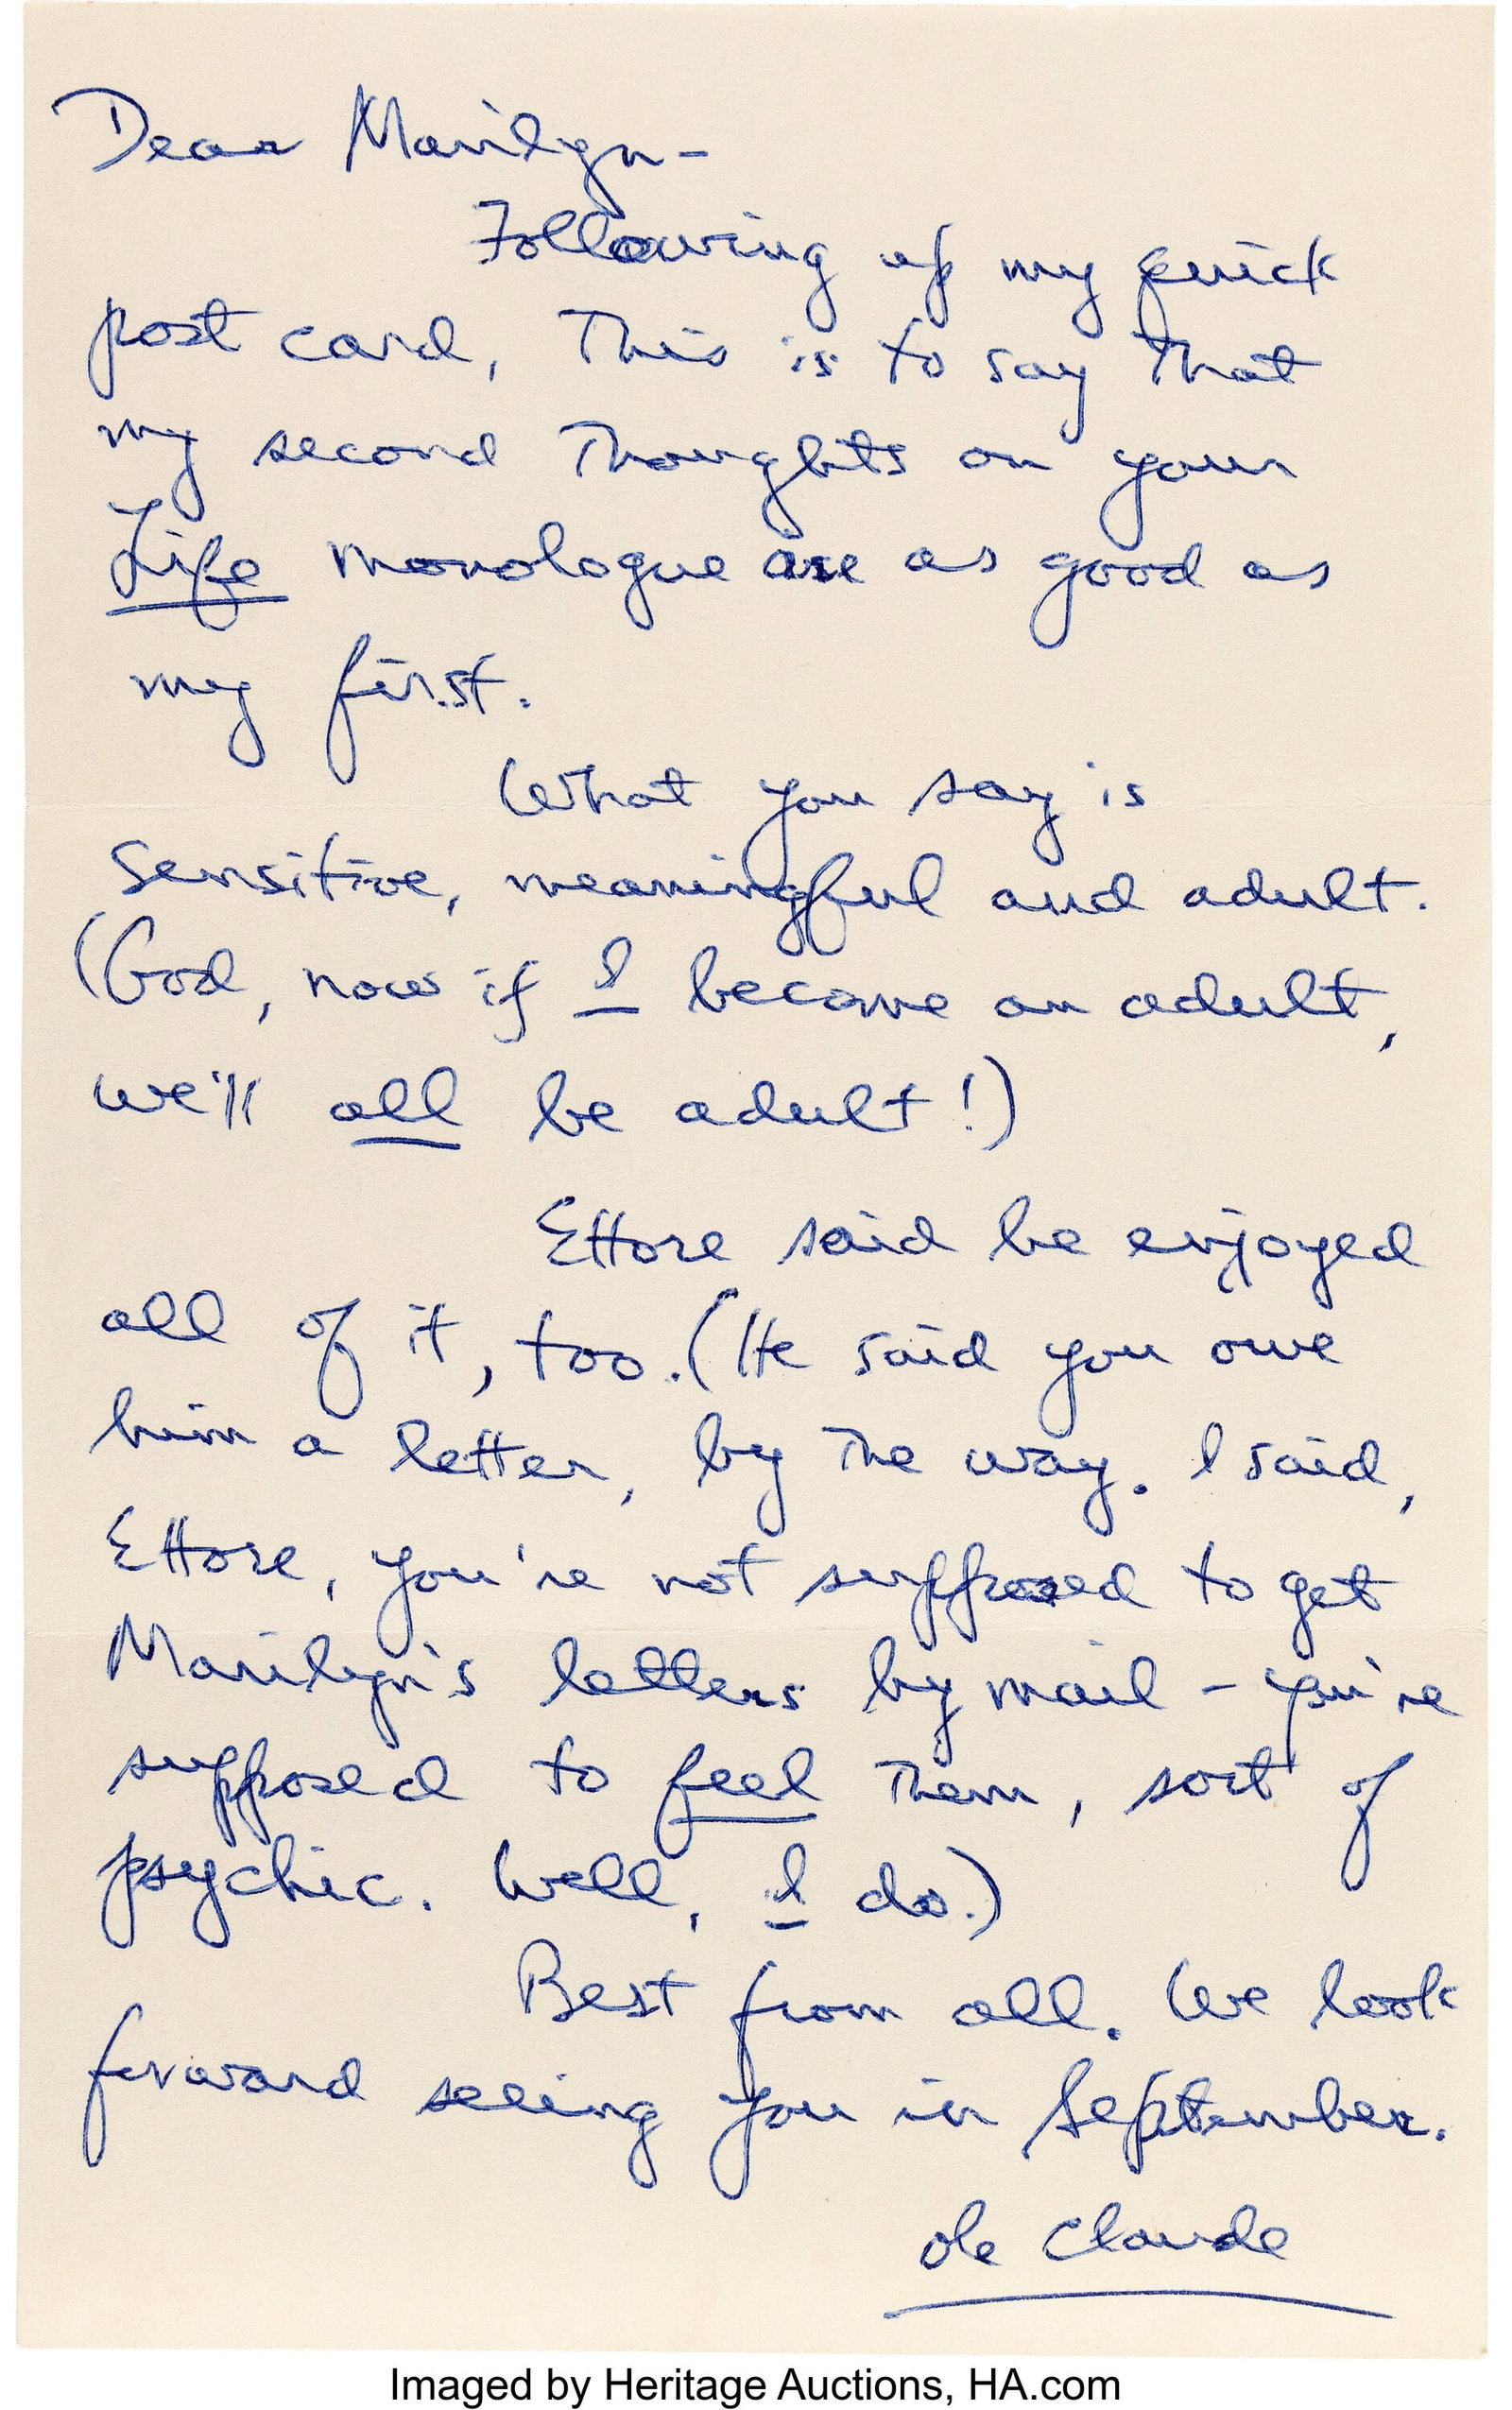 Dear Marilyn-
Following up my quick
post card, This is to say that
my second Thoughts on your
Life monologue are as good as
my first.
What you say is
sensitive, meaningful and adult.
(God, now if I become an adult,
we'll all be adult!)
Ettore said he enjoyed
all of it, too. (He said you owe
him a letter, by the way. I said,
Ettore, you're not supposed to get
Marilyn's letters by mail - you're
supposed to feel them, sort of
psychic. Well, I do.)
Best from all. We look
forward seeing you in September.
ole Claude
Imaged by Heritage Auctions, HA.com